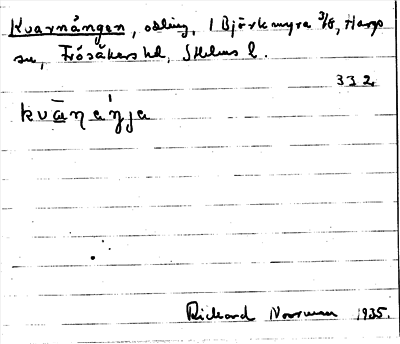 Kvarnängen, odling, 1 Björkmyra 3/8, Hargs
sn, Frösåkers hd, Sthlms l.
332
Richard Norrman 1935.